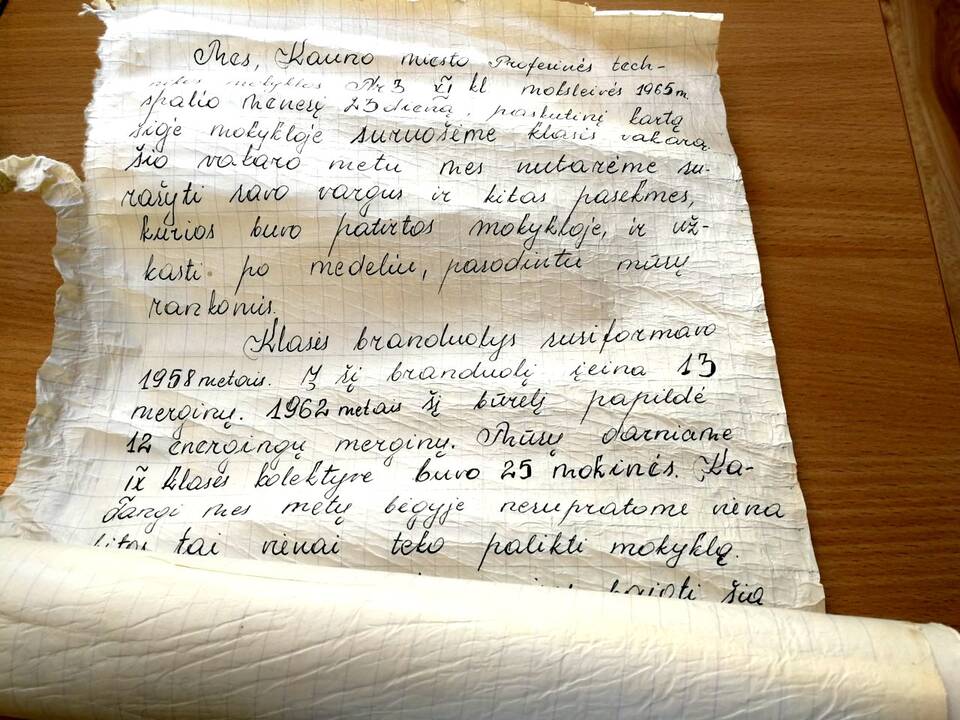 Mes, Kauno miesto Profesinės tech-
nikos mokyklos Nr 3 XI kl moksleivės 1965 m.
spalio mėnesį 23 dieną, paskutinį kartą
šioje mokykloje suruošėme klasės vakarą
šio vakaro metu mes nutarėme su-
rašyti savo vargus ir kitas pasekmes,
kurios buvo patirtos mokykloje, ir už-
kasti po medeliu, pasodintu mūsų
rankomis.
Klasės branduolys susiformavo
1958 metais. Į šį branduolį įeina 13
merginų. 1962 metais šį būrelį papildė
12 energingų merginų. Mūsų darniame
IX klasės kolektyve buvo 25 mokinės. Ka-
dangi mes metų bėgyje nesupratome viena
kitos tai vienai teko palikti mokyklą.
baigti šią